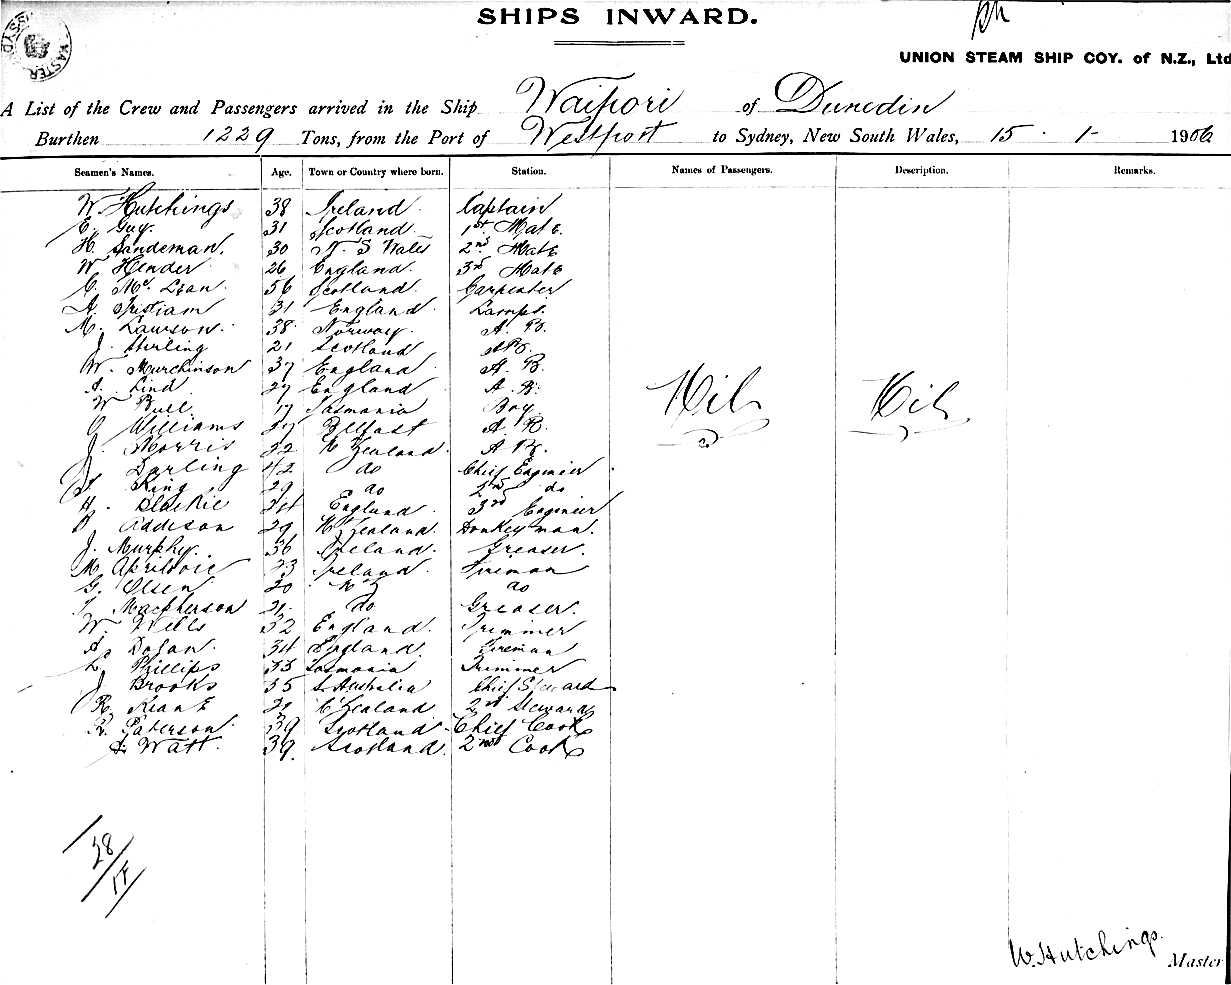 SHIPS INWARD.
UNION STEAM SHIP COY. of N.Z., Ltd
A List of the Crew and Passengers arrived in the Ship Waipori of Dunedin
Burthen 1229 Tons, from the Port of Westport to Sydney, New South Wales, 15 - 1 - 1906
Seamen's Names. Age. Town or Country where born. Station. Names of Passengers. Description. Remarks.
W. Hutchings 38 Ireland Captain
C. Guy. 31 Scotland 1st Mate
H. Sandeman. 30 N. S Wales 2nd Mate
W Hender 26 England 3rd Mate
C. Mc Lean 56 Scotland Carpenter
A. Tristram 31 England Lamps.
M. Lawson. 38 Norway. A. B.
J. Stirling 21 Scotland AB.
W. Murchinson 37 England A. B.
Lind 27 England A. B.
W Bull 17 Tasmania Boy
Nil Nil
Williams 27 Belfast A. B.
J. Morris 22 N Zealand A B.
J. Darling 42 do Chief Enginier
King 29 do 2nd do
H. Blackie 24 England 3rd Enginier
Addison 29 N Zealand. Donkeyman.
J. Murphy. 36 Ireland. Greaser.
M. 23 Ireland Fireman
G. Olsen 20 N Z do
T Macpherson 21 do Greaser.
W. Wells 32 England. Trimmer
A. Dolan. 34 England. Fireman
L. Phillips 33 Tasmania Trimmer
J Brooks 35 S. Australia Chief Steward
R. Keane 21 N Zealand 2nd Steward
R. Paterson. 39 Scotland Chief Cook
J. Watt. 39 Scotland. 2nd Cook
28
W. Hutchings.
Master